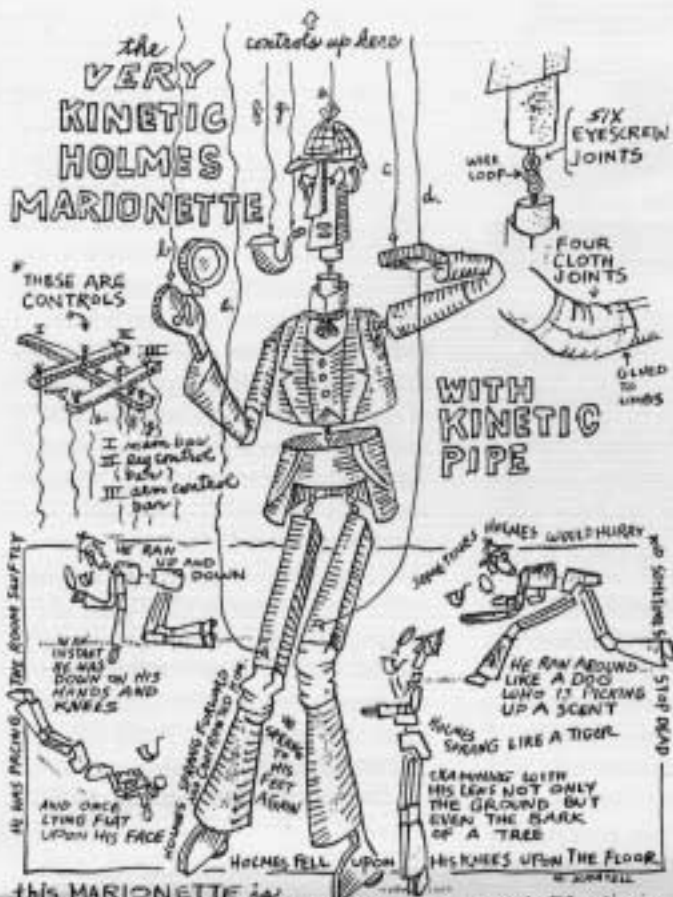 the
VERY
KINETIC
HOLMES
MARIONETTE
controls up here
a.
b.
c.
d.
e.
SIX
EYESCREW
JOINTS
WIRE
LOOP
FOUR
CLOTH
JOINTS
GLUED
TO
LIMBS
* THESE ARE
CONTROLS
I
II
III
I main bar
II leg control
(bar)
III arm control
bar
WITH
KINETIC
PIPE
HE WAS PACING THE ROOM SWIFTLY
HE RAN
UP AND
DOWN
IN AN
INSTANT
HE WAS
DOWN ON HIS
HANDS AND
KNEES
AND ONCE
LYING FLAT
UPON HIS FACE
HOLMES SPRANG FORWARD
AND CONFRONTED HIM
HE
SPRANG
TO
HIS
FEET
AGAIN
SOMETIMES HOLMES WOULD HURRY
AND SOMETIMES STOP DEAD
HE RAN AROUND
LIKE A DOG
WHO IS PICKING
UP A SCENT
HOLMES
SPRANG LIKE A TIGER
EXAMINING WITH
HIS LENS NOT ONLY
THE GROUND BUT
EVEN THE BARK
OF A TREE
HOLMES FELL UPON HIS KNEES UPON THE FLOOR
this MARIONETTE is